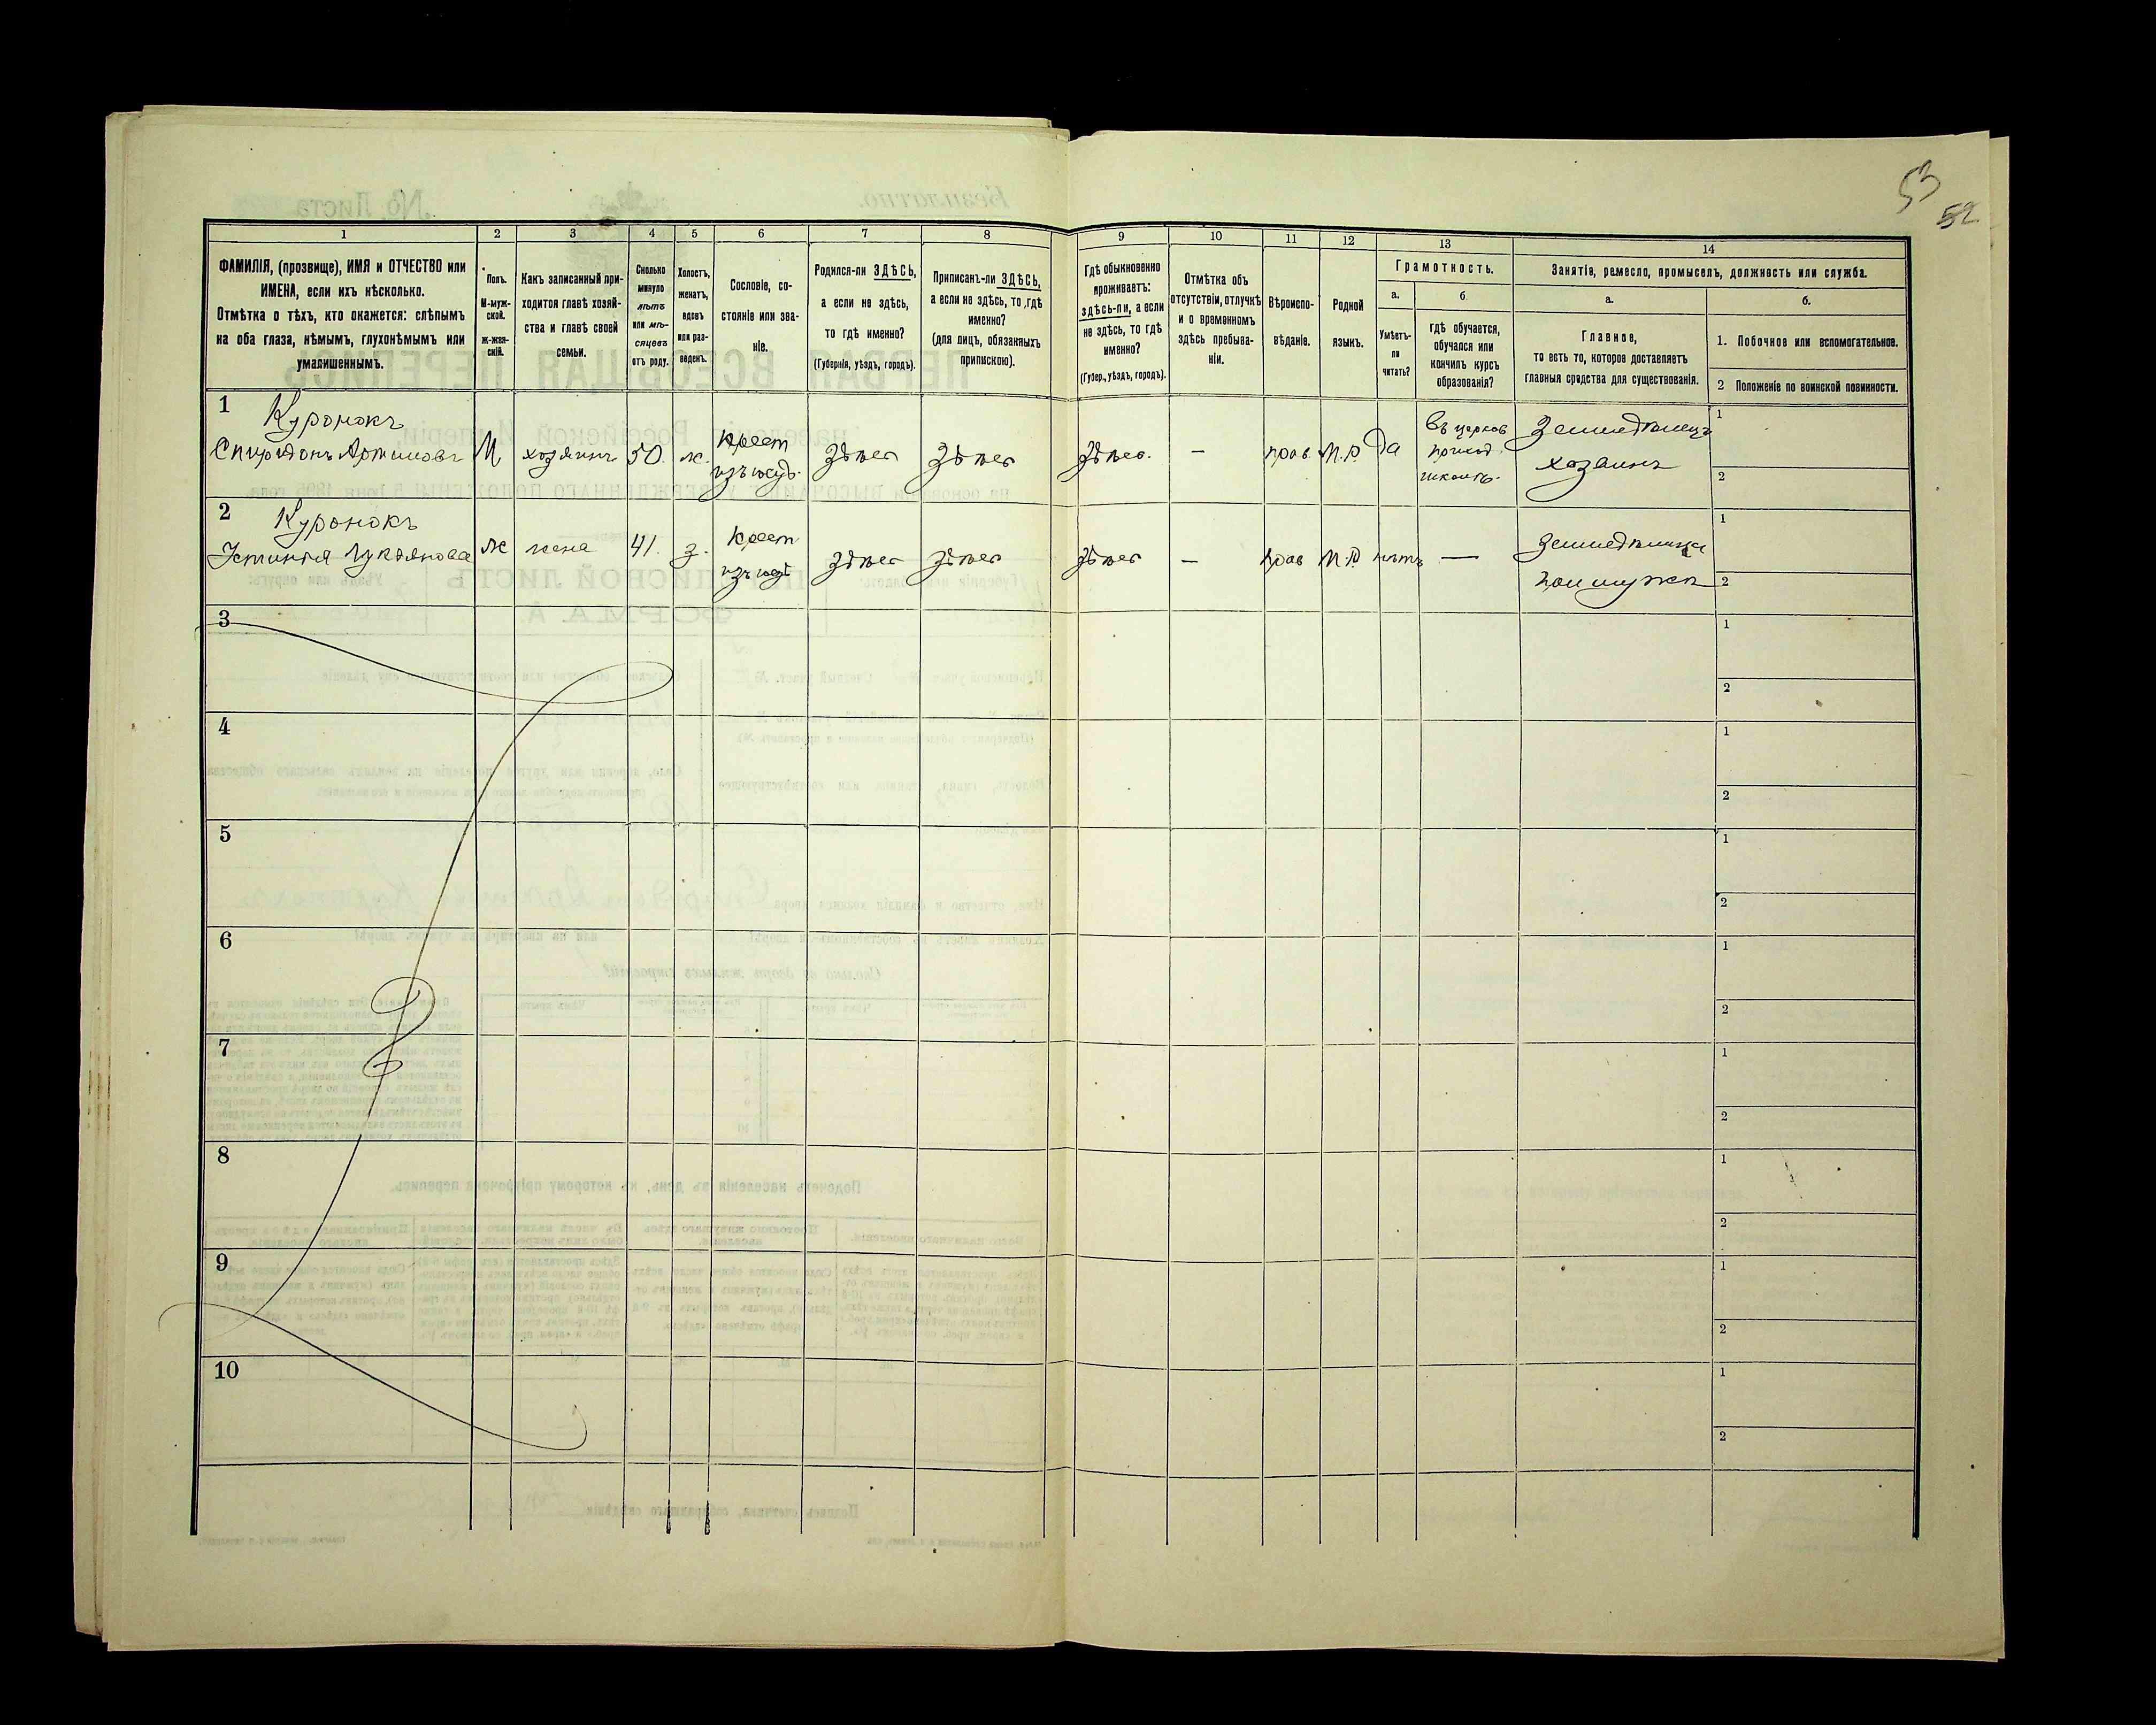 53
52
1
2
3
4
5
6
7
8
9
10
11
12
13
14
ФАМИЛІЯ, (прозвище), ИМЯ и ОТЧЕСТВО или
ИМЕНА, если ихъ нѣсколько.
Отмѣтка о тѣхъ, кто окажется: слѣпымъ
на оба глаза, нѣмымъ, глухонѣмымъ или
умалишеннымъ.
Полъ.
М-муж-
ской.
ж-жен-
скій.
Какъ записанный при-
ходится главѣ хозяй-
ства и главѣ своей
семьи.
Сколько
минуло
лѣтъ
или мѣ-
сяцевъ
отъ роду.
Холостъ,
женатъ,
вдовъ
или раз-
веденъ.
Сословіе, со-
стояніе или зва-
ніе.
Родился-ли ЗДѢСЬ,
а если не здѣсь,
то гдѣ именно?
(Губернія, уѣздъ, городъ).
Приписанъ-ли ЗДѢСЬ,
а если не здѣсь, то гдѣ
именно?
(для лицъ, обязанныхъ
припискою).
Гдѣ обыкновенно
проживаетъ:
здѣсь-ли, а если
не здѣсь, то гдѣ
именно?
(Губер., уѣздъ, городъ).
Отмѣтка объ
отсутствіи, отлучкѣ
и о временномъ
здѣсь пребыва-
ніи.
Вѣроиспо-
вѣданіе.
Родной
языкъ.
Грамотность.
а.
Умѣетъ-
ли
читать?
б.
гдѣ обучается,
обучался или
кончилъ курсъ
образованія?
Занятіе, ремесло, промыселъ, должность или служба.
а.
Главное,
то есть то, которое доставляетъ
главныя средства для существованія.
б.
1. Побочное или вспомогательное.
2 Положеніе по воинской повинности.
1
Куронокъ
Спиридонъ Артимовъ
М
хозяинъ
50.
ж.
крест
здѣсь
здѣсь
здѣсь.
—
прав.
М.р.
Да
Въ церков
приход.
школѣ.
Земледѣлецъ
хозаинъ
1
2
2
Куронокъ
Устинія Лукіянова
ж
жена
41.
з.
крест
здѣсь
здѣсь
здѣсь
—
прав
М.р
нѣтъ
—
1
2
3
1
2
4
1
2
5
1
2
6
1
2
7
1
2
8
1
2
9
1
2
10
1
2